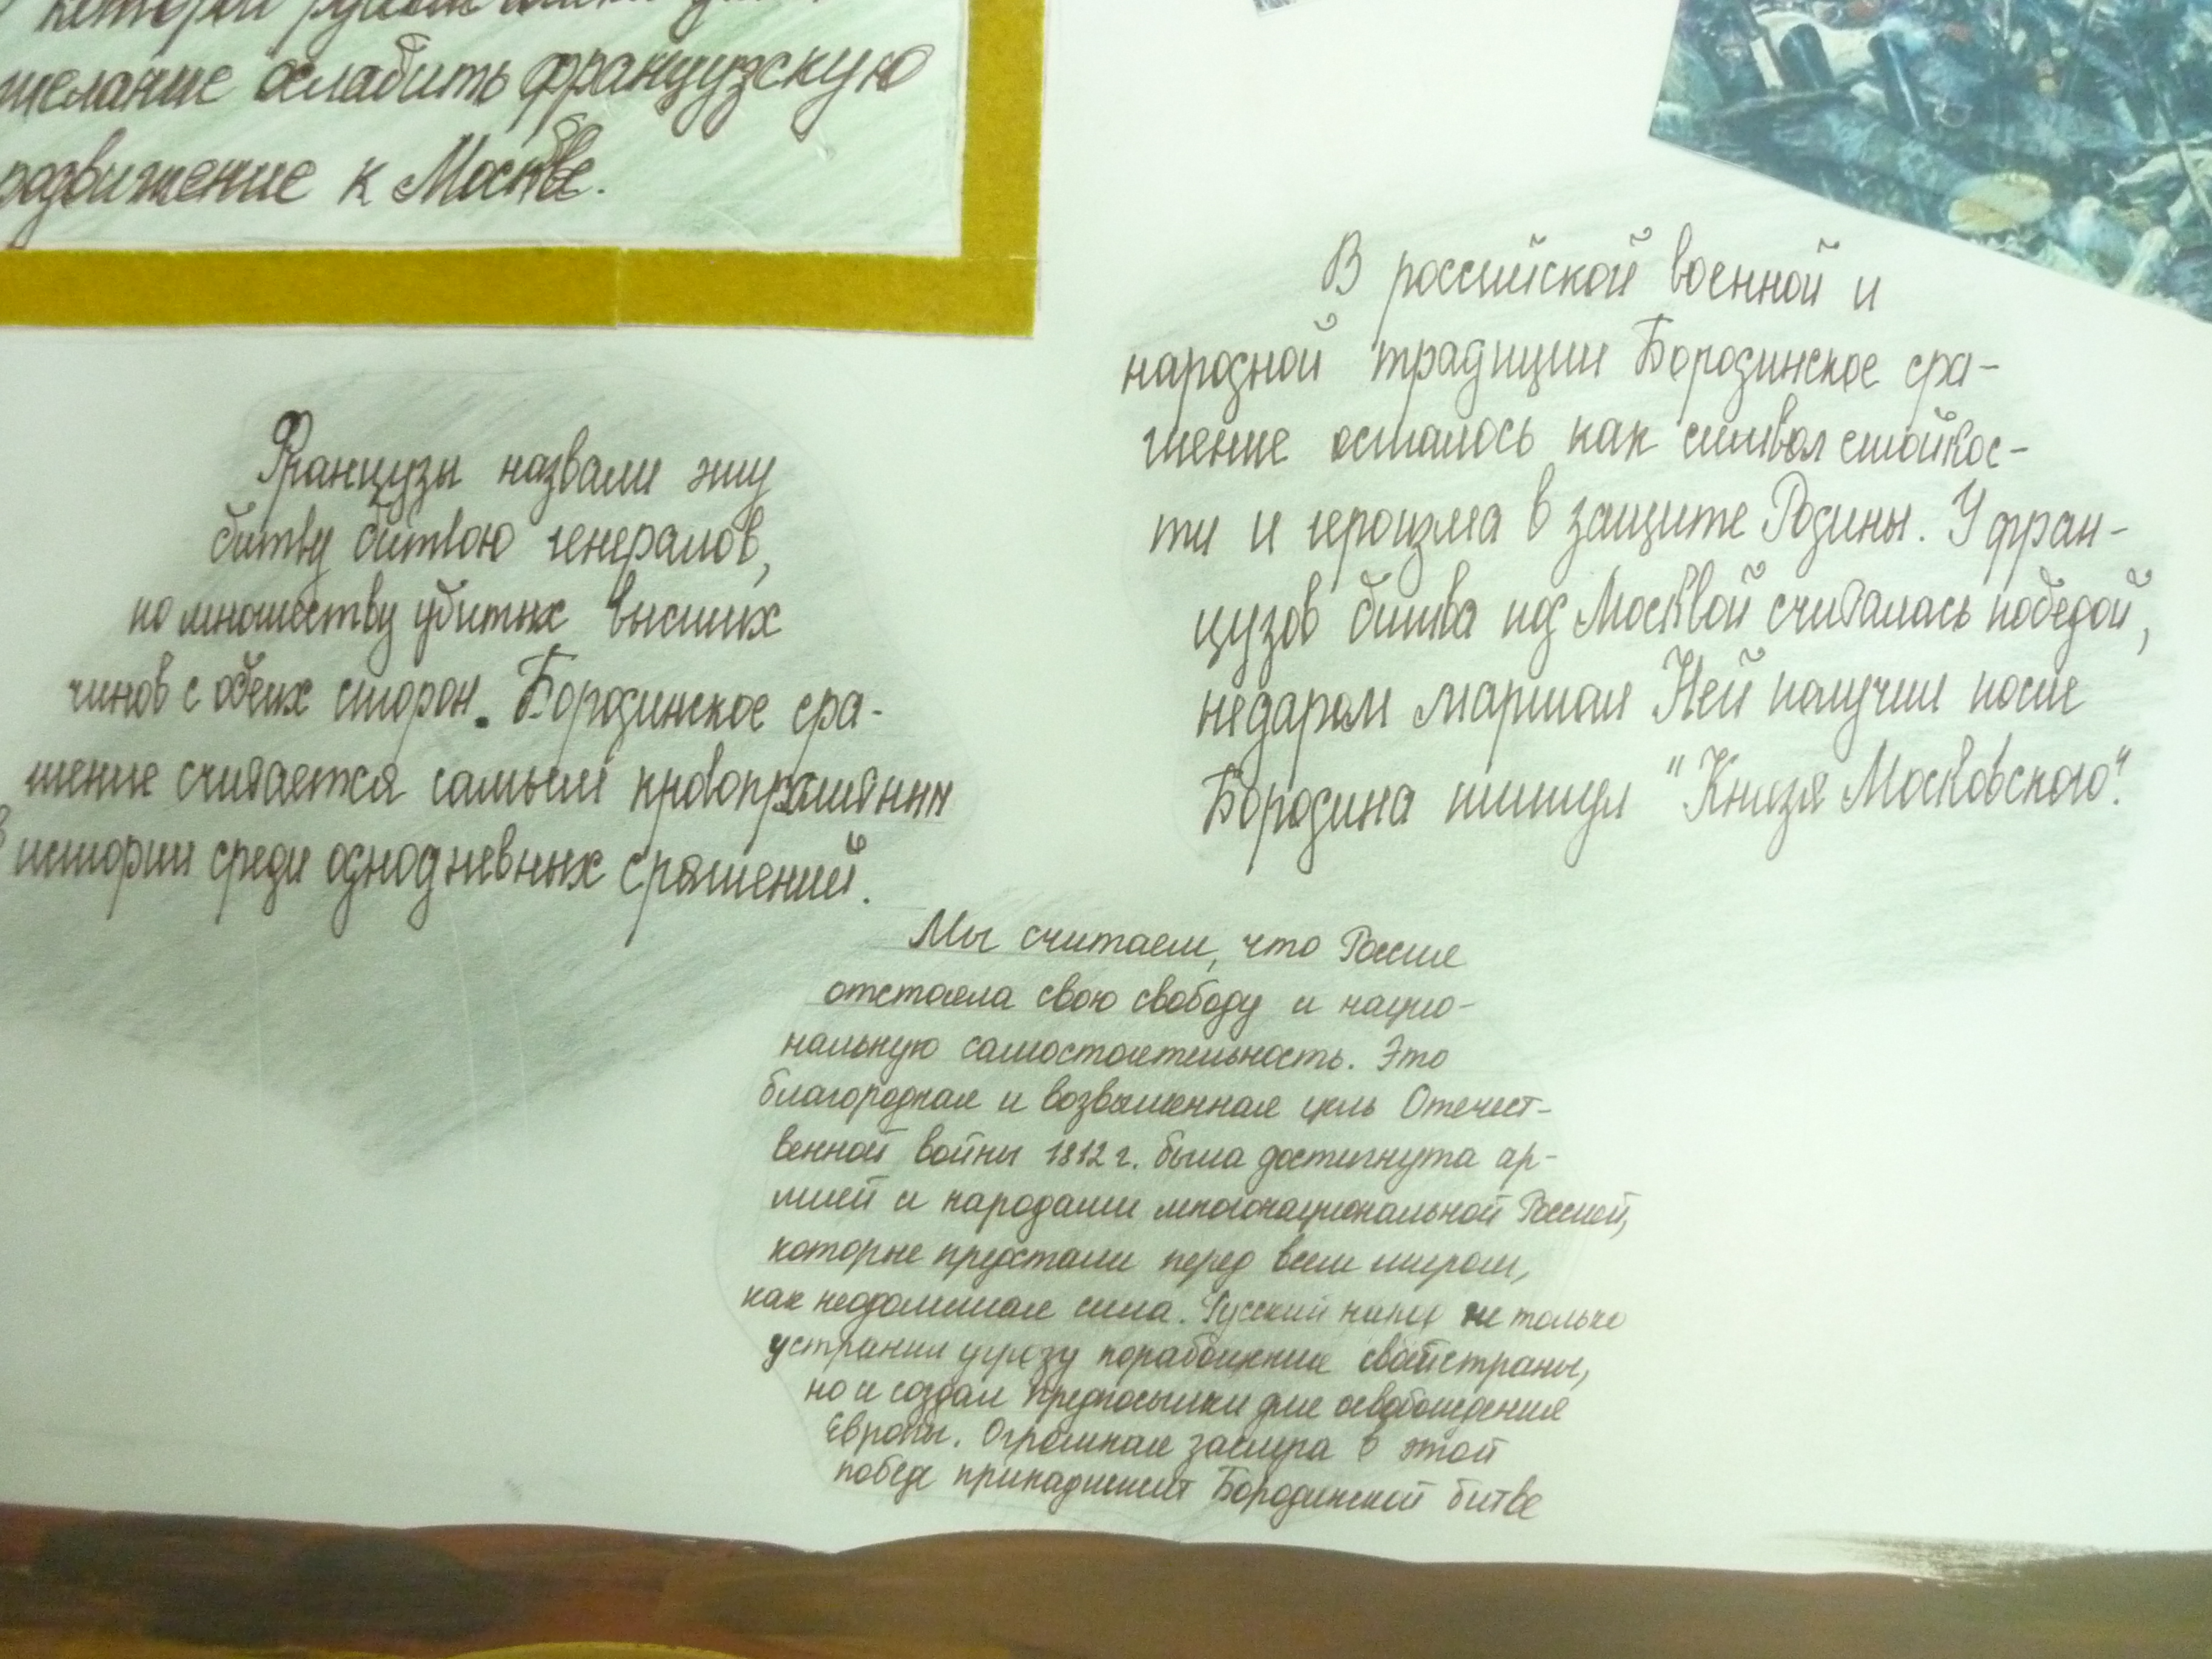 которой
желание ослабить французскую
родвижение к Москве.
Французы назвали эту
битву битвою генералов,
по множеству убитых высших
чинов с обеих сторон. Бородинское сра-
жение считается самым кровопролитным
в истории среди однодневных сражений.
В российской военной и
народной традиции Бородинское сра-
жение осталось как символ стойкос-
ти и героизма в защите Родины. У фран-
цузов битва под Москвой считалась победой,
недаром маршал Ней получил после
Бородина титул "Князя Московского".
Мы считаем, что Россия
отстояла свою свободу и нацио-
нальную самостоятельность. Это
благородная и возвышенная цель Отечест-
венной войны 1812 г. была достигнута ар-
мией и народами многонациональной Россией,
которые предстали перед всем миром,
как неодолимая сила. Русский народ не только
устранил угрозу порабощения своей страны,
но и создал предпосылки для освобождения
Европы. Огромная заслуга в этой
победе принадлежит Бородинской битве